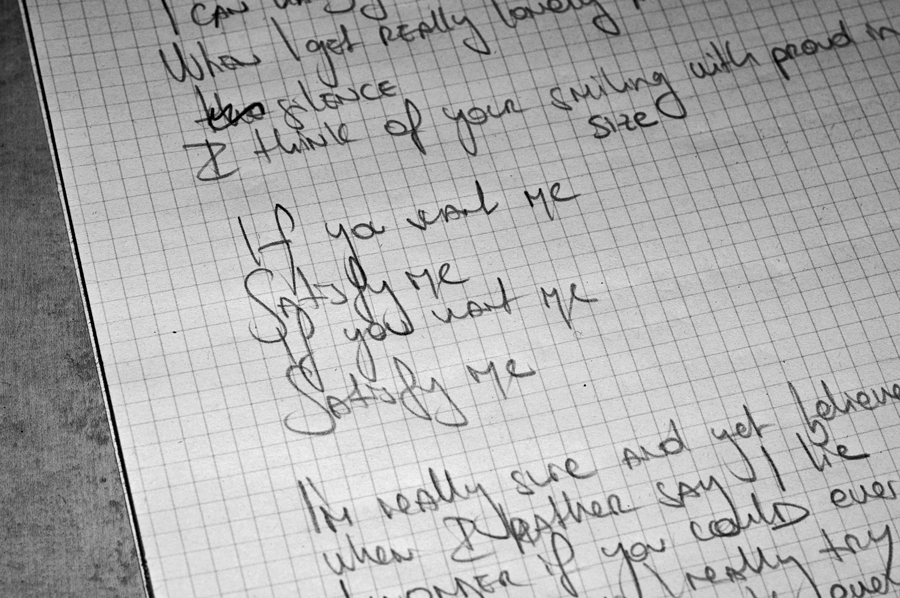 I CAN
When I get REALLY lonely
silence
I think of your smiling with proud in
size
If you want me
Satisfy me
If you want me
Satisfy me
I'm really sure and yet believe
when I RAther say I lie
if you could ever
really try